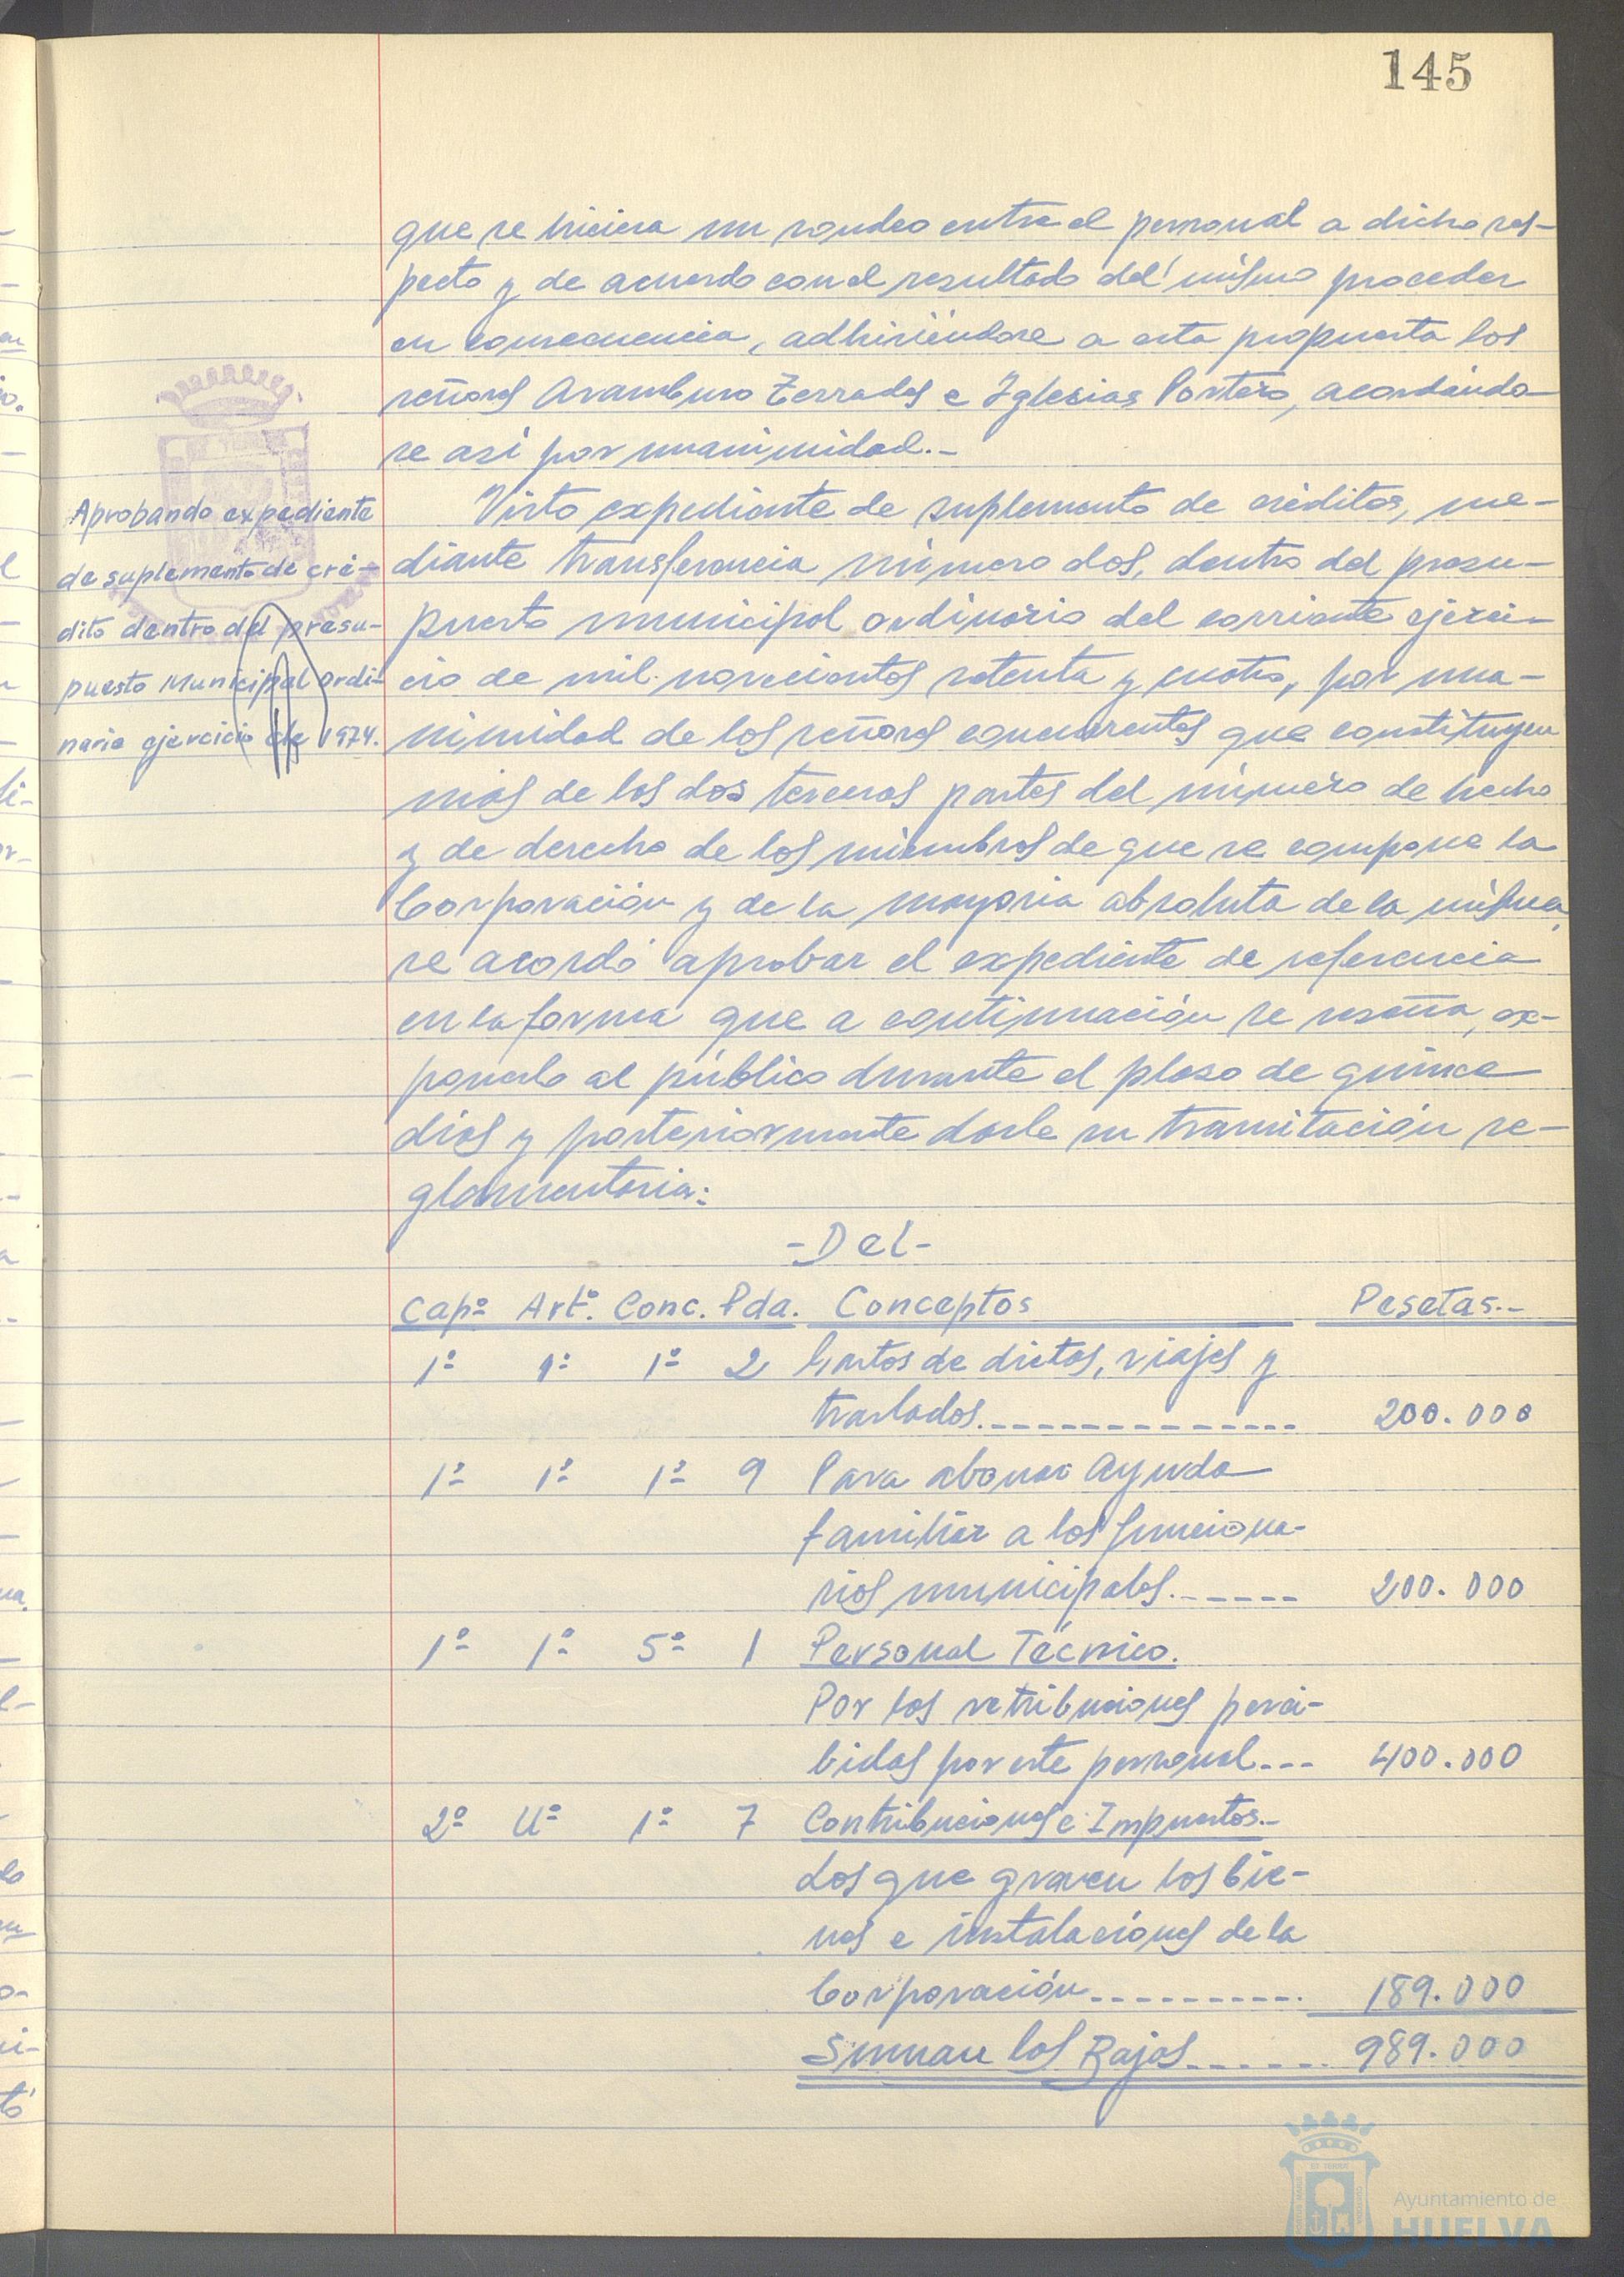 145
que se hiciera un sondeo entre el personal a dicho res-
pecto y de acuerdo con el resultado del mismo proceder
en consecuencia, adhiriéndose a esta propuesta los
señores Aramburo Terrades e Iglesias Portero, acordándo-
se así por unanimidad.-
Aprobando expediente
de suplemento de cré-
dito dentro del presu-
puesto Municipal ordi-
nario ejercicio de 1974.
Visto expediente de suplemento de créditos, me-
diante transferencia número dos, dentro del presu-
puesto municipal ordinario del corriente ejerci-
cio de mil novecientos setenta y cuatro, por una-
nimidad de los señores concurrentes que constituyen
más de las dos terceras partes del número de hecho
y de derecho de los miembros de que se compone la
Corporación y de la mayoria absoluta de la misma,
se acordó aprobar el expediente de referencia
en la forma que a continuación se reseña, ex-
ponerlo al público durante el plazo de quince
dias y posteriormente darle su tramitación re-
glamentaria:
-Del-
Capº Artº. Conc. Pda. Conceptos Pesetas.-
1º 1º 1º 2 Gastos de dietas, viajes y
traslados.------------- 200.000
1º 1º 1º 9 Para abonar Ayuda
familiar a los funciona-
rios municipales.------ 200.000
1º 1º 5º 1 Personal Técnico.
Por las retribuciones perci-
bidas por este personal--- 400.000
2º Uº 1º 7 Contribuciones e Impuestos.-
Los que graven los bie-
nes e instalaciones de la
Corporación---------. 189.000
Suman las Bajas------ 989.000
Ayuntamiento de
HUELVA